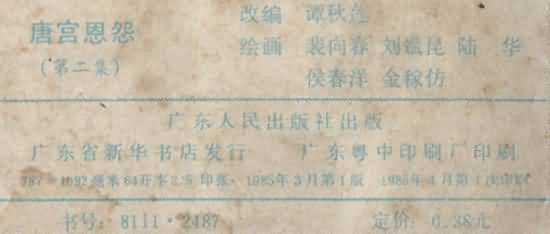 唐宫恩怨
(第二集)
改编 谭秋
绘画 裴向春 刘斌昆 陆 华
侯春洋 金稼仿
广东人民出版社出版
广东省新华书店发行 广东粤中印刷厂印刷
787×1092毫米64开本 印张·1985年3月第1版 1986年 月第1次印刷
书号:8111·2487 定价:0.38元